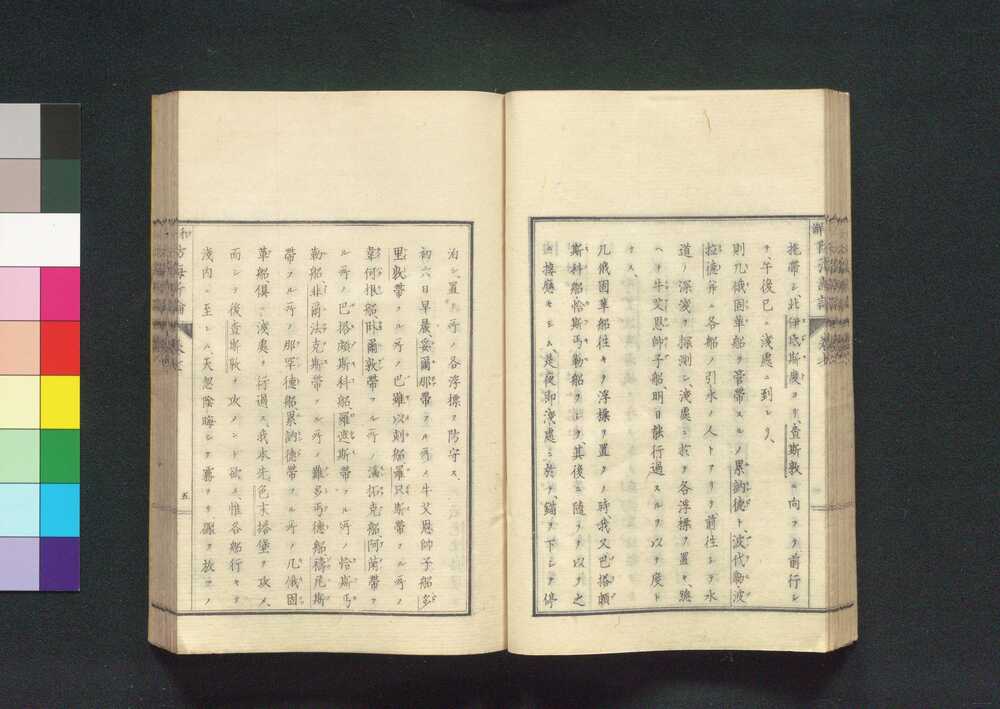 托帶シ、此伊底斯麼ヨリ、查斯敦ニ向フテ前行シ
テ、午後已ニ淺處ニ到レリ、
則凡俄固革船ヲ管帶スルノ累訥德ト、波代勒波
拉德ト、各船ノ引水ノ人トアリテ前往シテ水
道ノ深淺ヲ探測シ、淺處ニ於テ各浮標ヲ置キ、
ヘテ牛艾恩帥子船、明日能行過スルヲ以テ度ト
ナス、
凡俄固革船往キテ浮標ヲ置クノ時我又巴塔頗
斯科船恰斯丐勒船ヲシテ、其後ニ隨テ以テ之
ニ接應セシム、是夜即淺處ニ於テ、錨ヲ下シテ停
泊シ、置ク所ノ各浮標ヲ防守ス、
初六日早晨、妥爾那帶フル所ノ牛艾恩帥子船多
里敦帶フル所ノ巴雖以刻船羅只斯帶フル所ノ
韋何根船、耶爾敦帶フル所ノ滿拓克船、阿蘭帶フ
ル所ノ巴塔頗斯科船羅遮斯帶フル所ノ恰斯丐
勒船、非爾法克斯帶フル所ノ難多丐德船禱尾斯
帶フル所ノ那罕德船累訥德帶フル所ノ凡俄固
革船、俱ニ淺處ヲ行過ス、我本先色末塔堡ヲ攻メ、
而シテ後查斯敦ヲ攻メント欲ス、惟各船行キテ
淺內ニ至レハ、天忽陰晦シテ霧アリ礮ヲ放ツノ
五